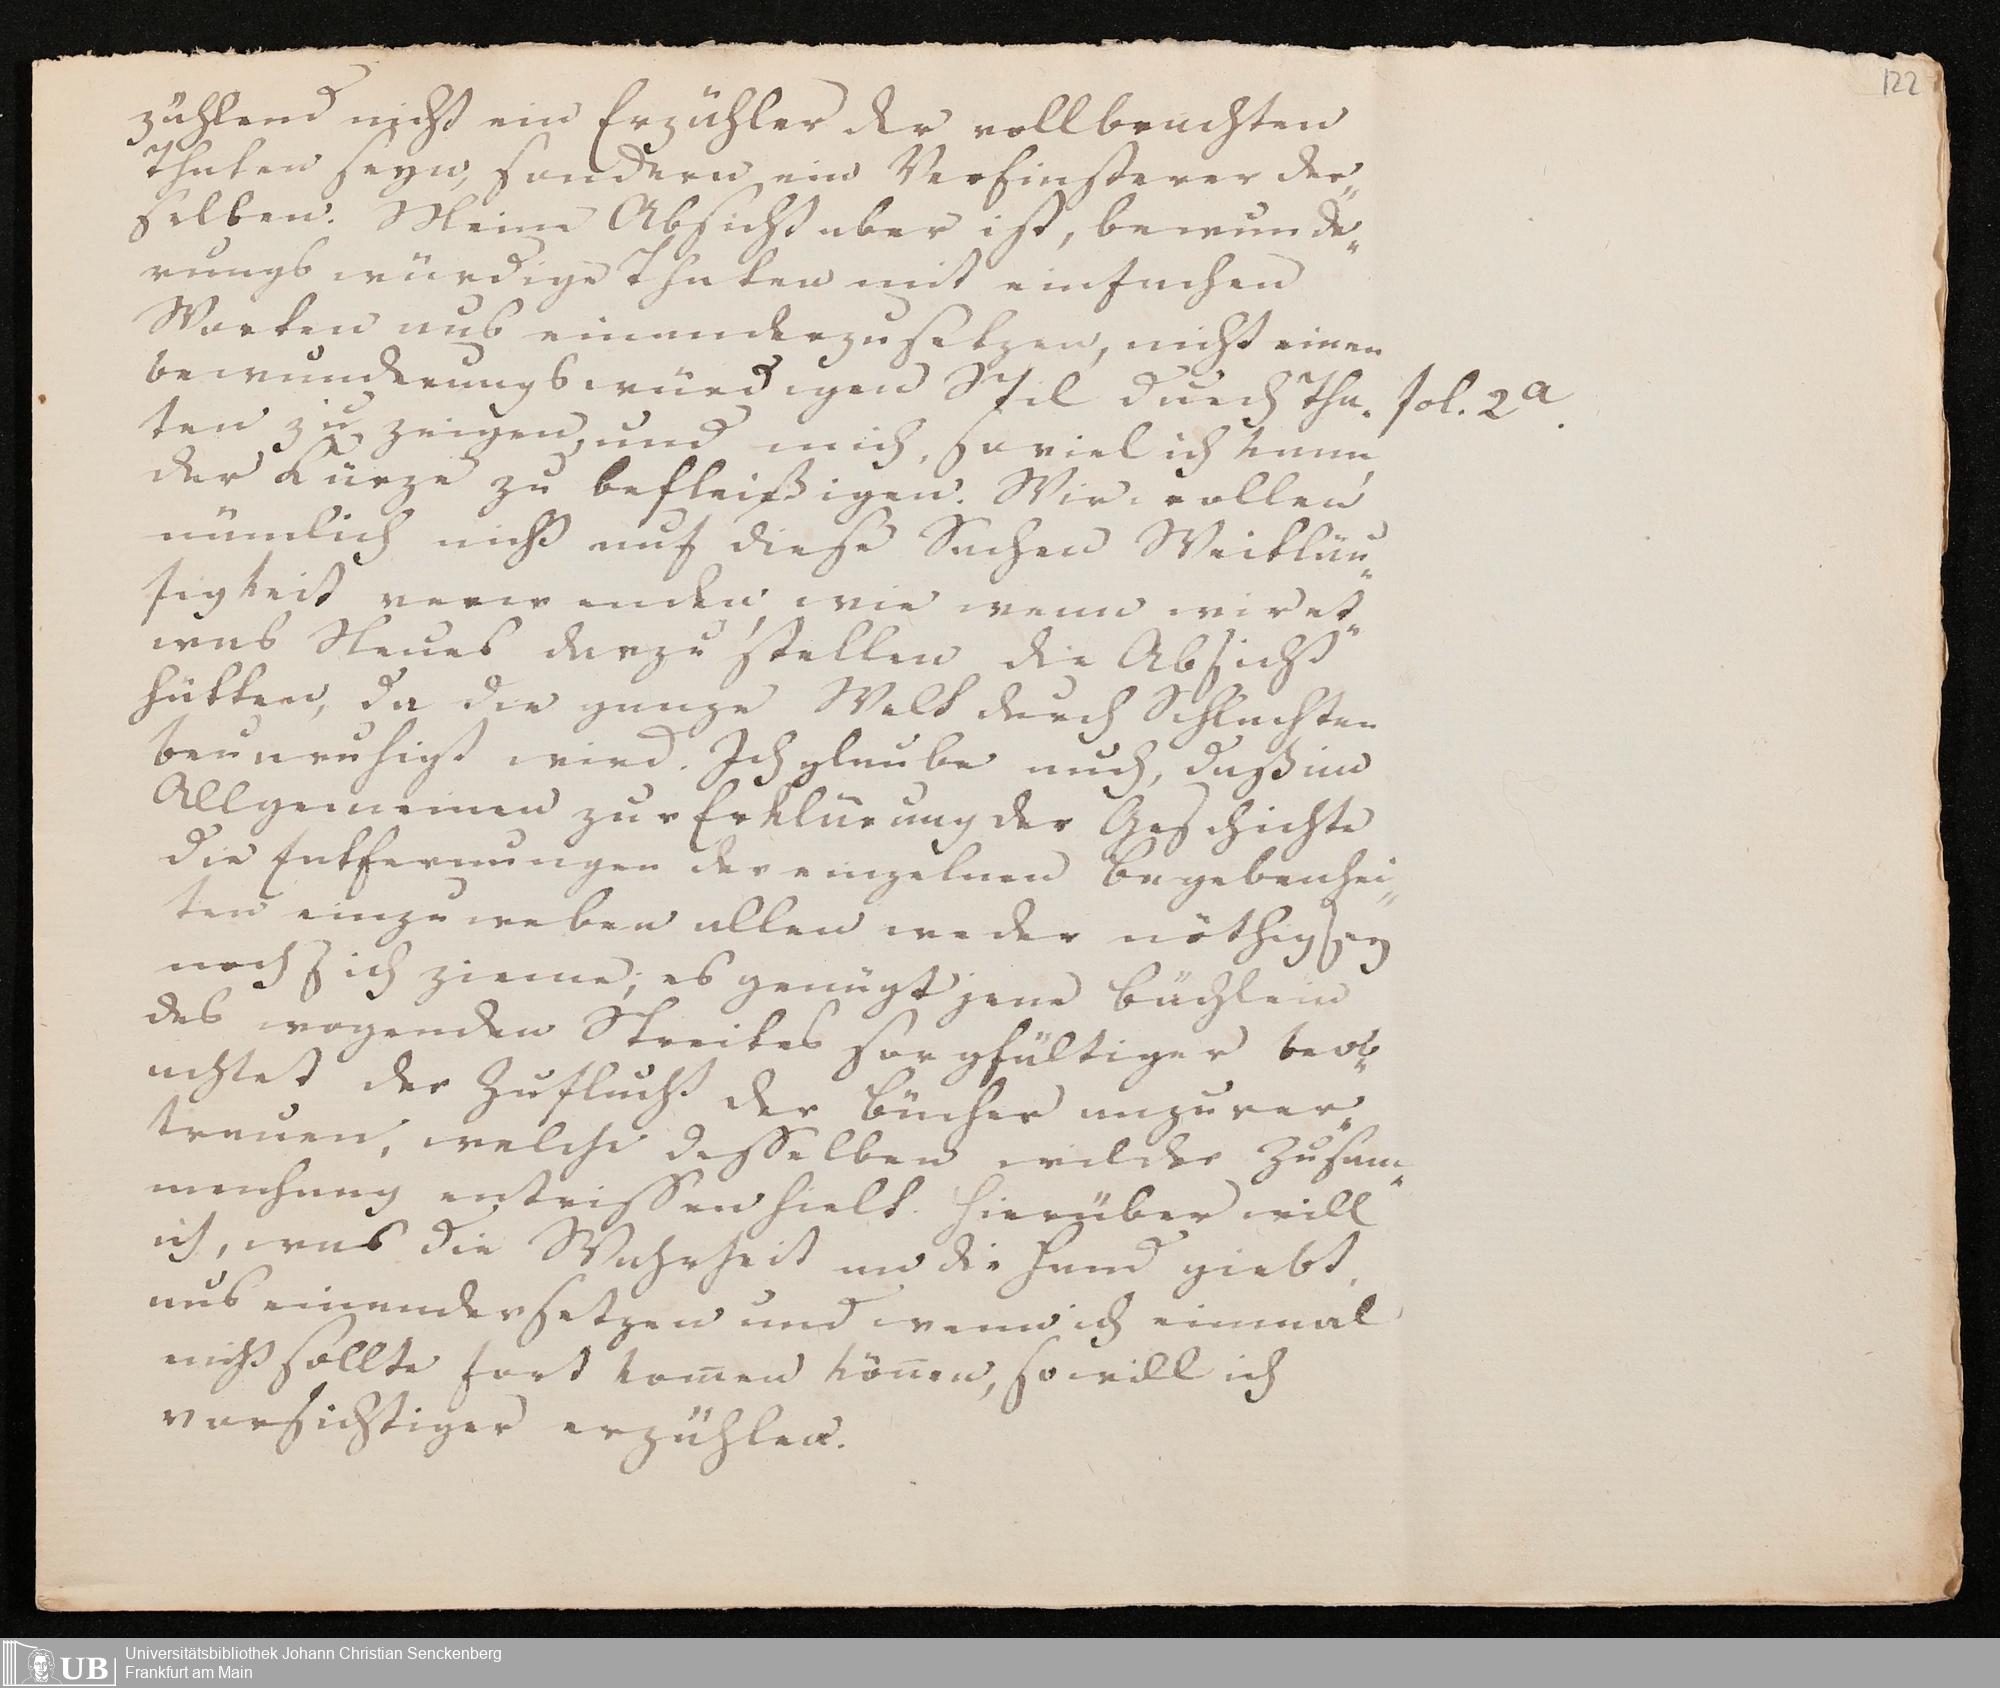 122
zählend nicht ein Erzähler der vollbrachten
Thaten seyn, sondern ein Verfinsterer der„
selben. Meine Absicht aber ist, bewunde„
rungswürdige Thaten mit einfachen
Worten aus einanderzusetzen, nicht einen
bewunderungswürdigen Styl durch Tha„ fol. 2a.
ten zu zeigen, und mich, soviel ich kann,
der Kürze zu befleißigen. Wir wollen
nämlich nicht auf diese Sachen Weitläu„
figkeit verwenden, wie wenn wir et„
was Neues darzustellen die Absicht
hätten, da die ganze Welt durch Schlachten
beunruhigt wird. Ich glaube auch, daß im
Allgemeinen zur Erklärung der Geschichte
die Entfernungen der einzelnen Begebenhei„
ten einzuweben allen weder nöthig sey
noch sich zieme; es genügt jene Büchlein
des wogenden Streites sorgfältiger beob„
achtet der Zuflucht der Bücher anzuver„
trauen, welche desselben wilder Zusam„
menhang entrissen hielt. Hierüber will
ich, was die Wahrheit an die Hand giebt,
aus einandersetzen und wenn ich einmal
nicht sollte fort kom̅en kön̅en, so will ich
vorsichtiger erzählen.
UB
Universitätsbibliothek Johann Christian Senckenberg
Frankfurt am Main